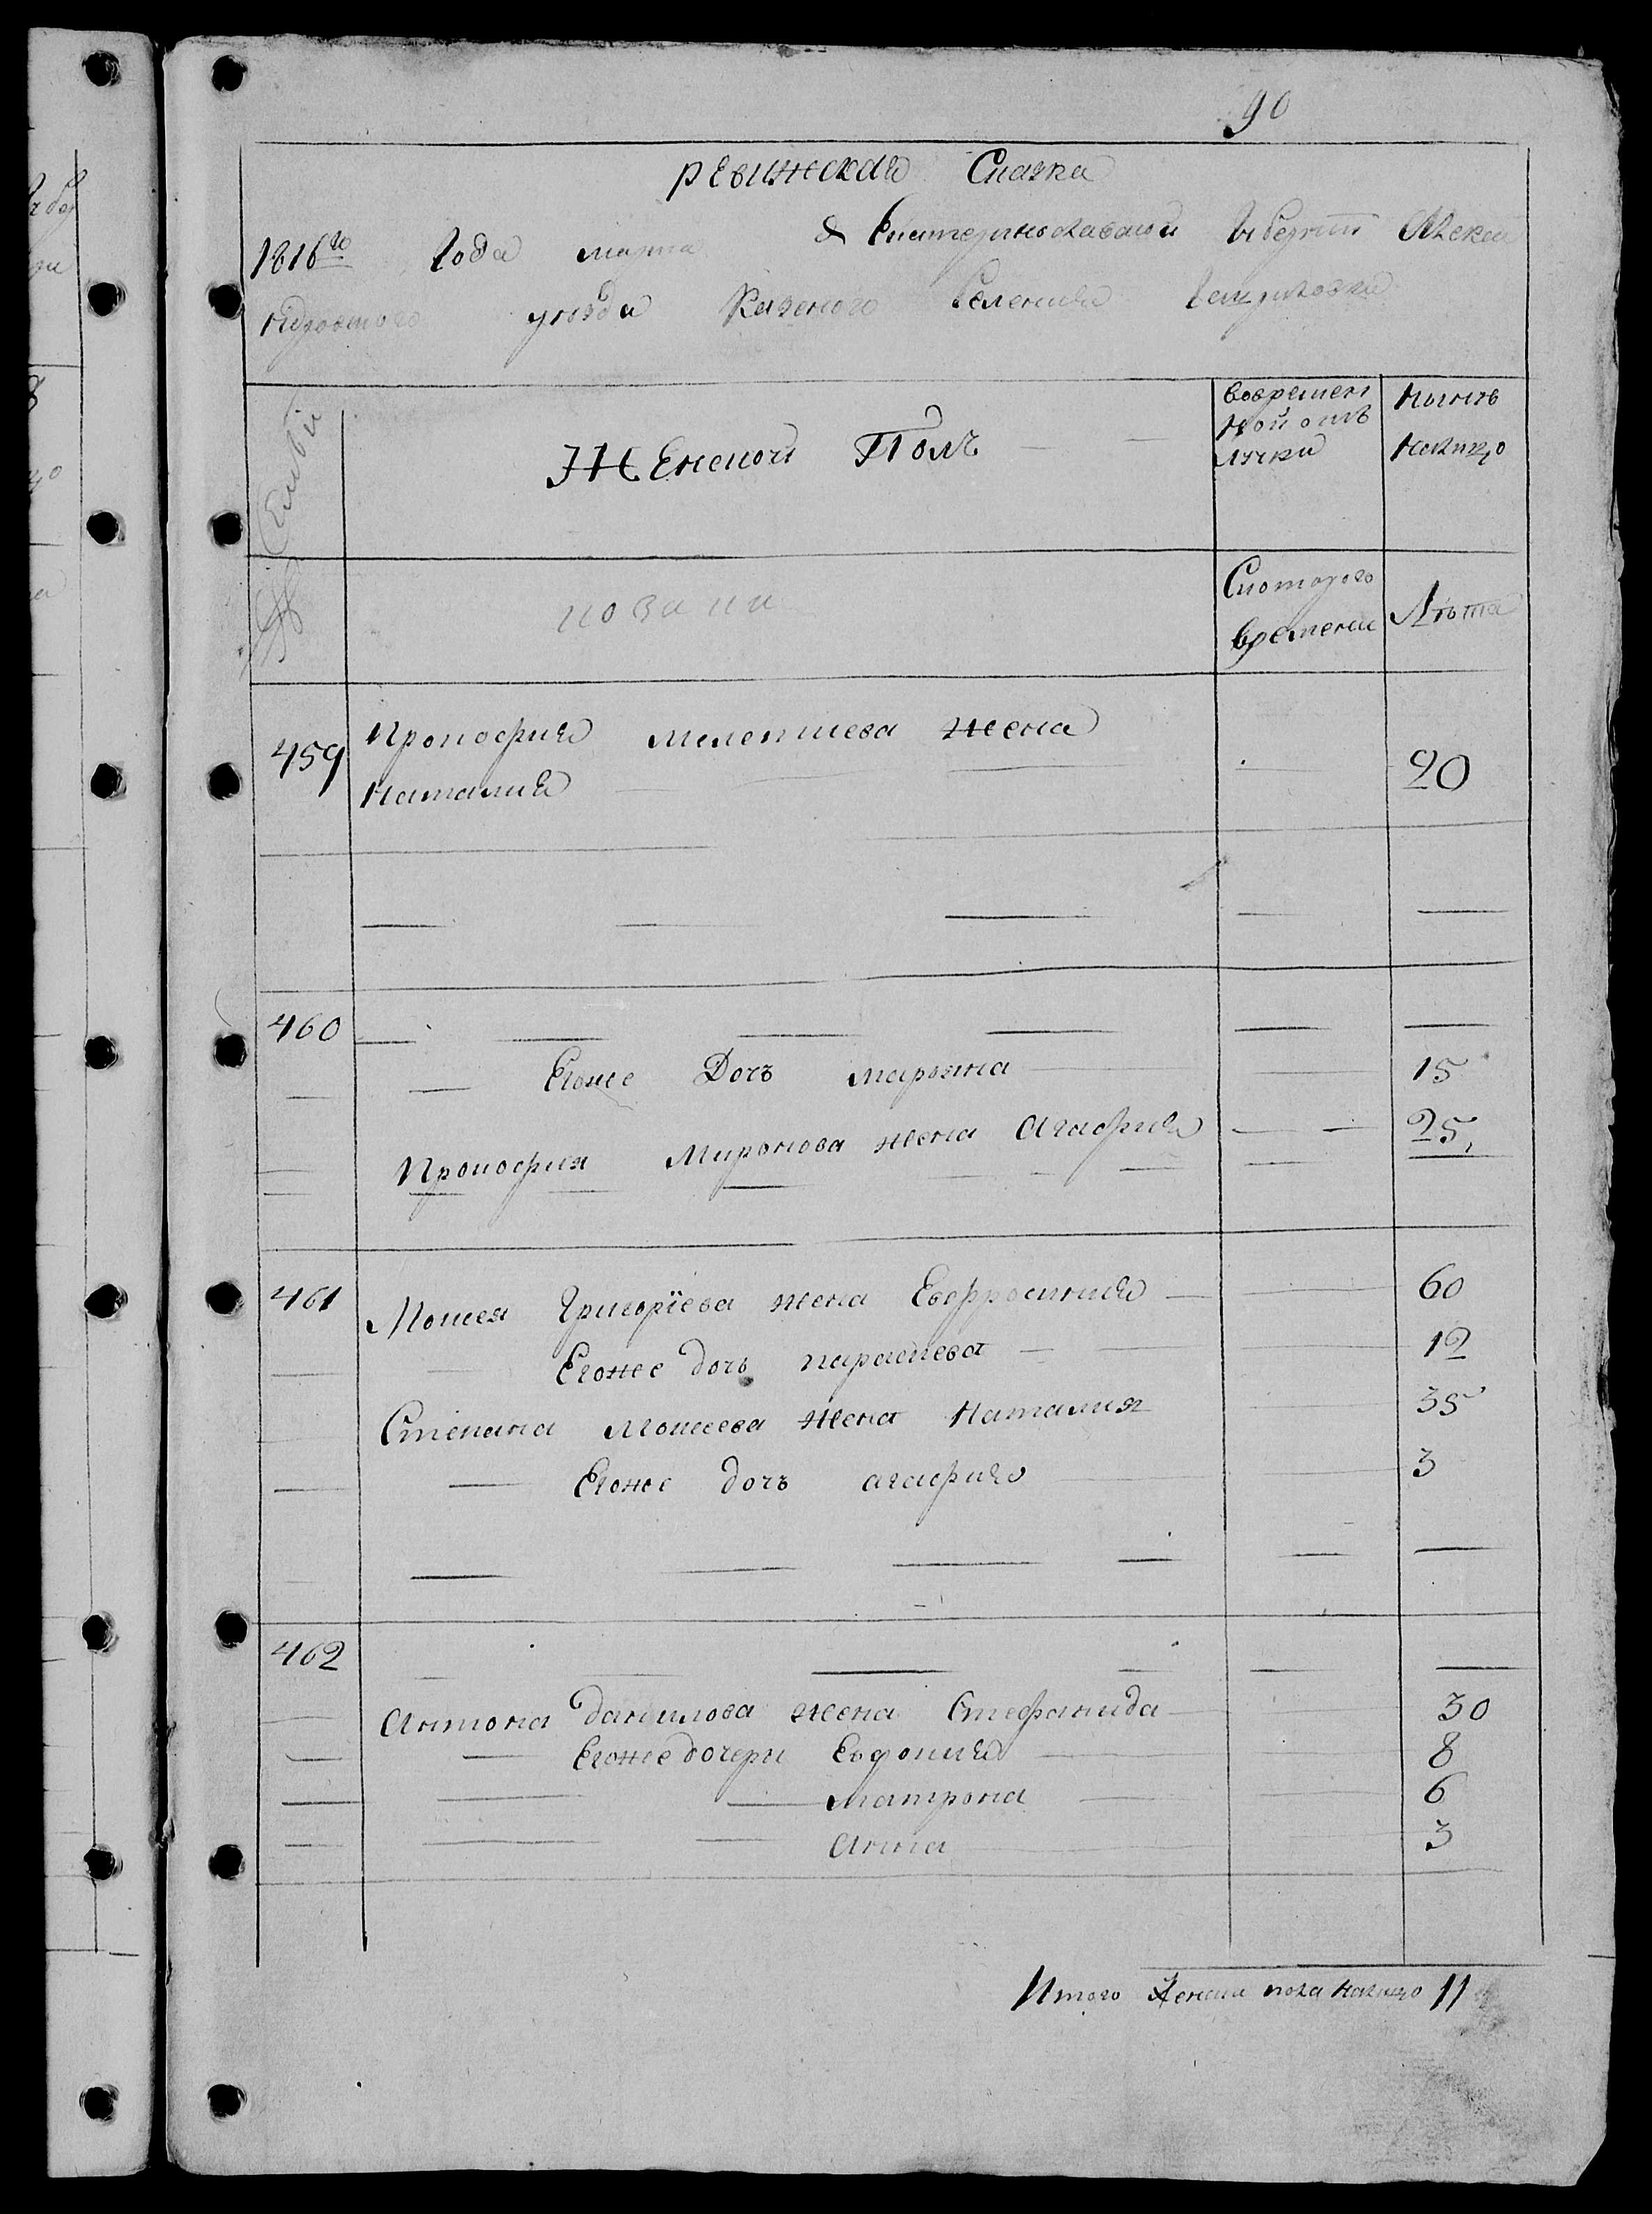 90
ревижская Сказка
1816го Года марта & Екатеринославской Губернии Алексан
ндровского уезда Казеного Селения
Семьи
Женской Полъ
Вовремен
ной отъ
лучки
Ныне
налицо
Скоторого
времени
Лѣта
459 Прокофия мелентиева жена
Наталия 20
460
Егоже Дочъ марфина 15
Прокофия Миронова жена Агафия 25
461 Мокея Григорїева жена Евфросиния 60
Егоже дочь параскева 12
Степана Мокеева жена Наталия 35
Егоже дочъ агафия 3
462
Антона данилова жена Стефанида 30
Егоже дочери Евдокия 8
матрона 6
Анна 3
Итого Женска пола налицо 11